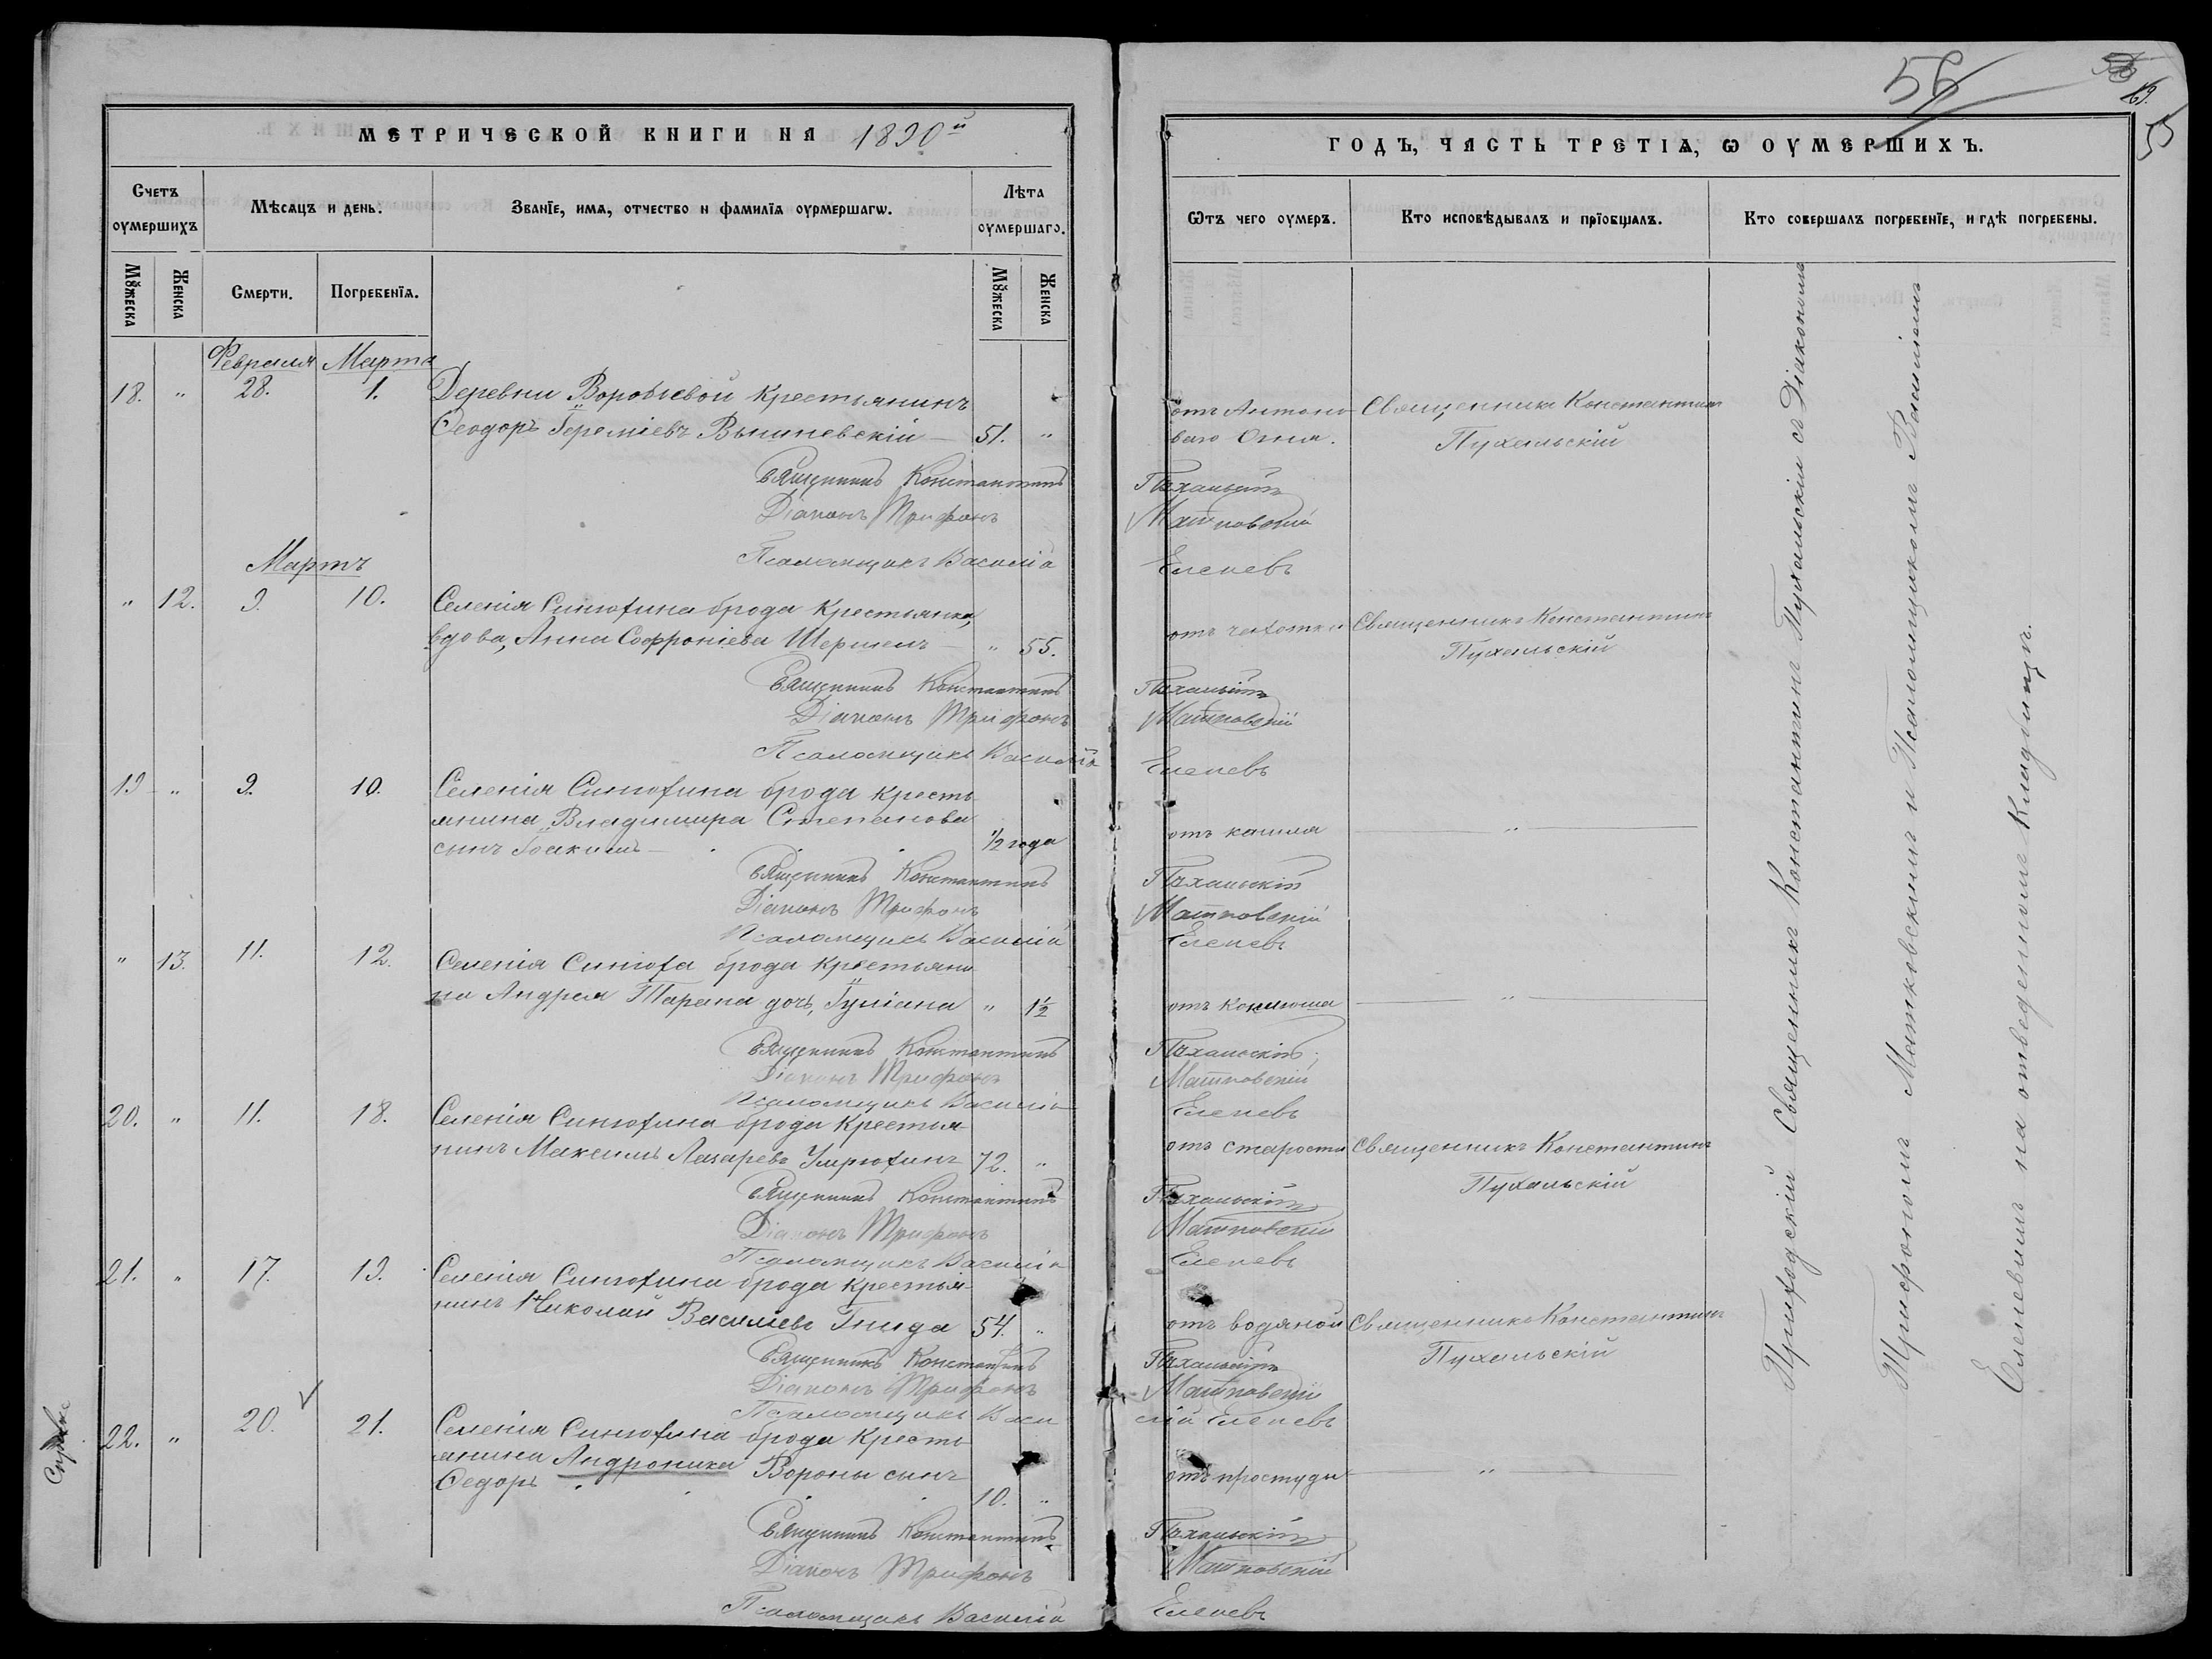 МЕТРИЧЕСКОЙ КНИГИ НА 1890й
Счетъ оумершихъ
Мѣсяцъ и день.
Званїе, имя, отчество и фамилїя оурмершагѡ.
Лѣта оумершаго.
Мꙋжеска
Женска
Смерти.
Погребенїя.
Мꙋжеска
Женска
Февраля Марта
18. " 28. 1. Деревни Воробіевой крестьянинъ
Ѳеодоръ Іереміевъ Вышневскій — 51. "
Священникъ Константинъ
Діаконъ Трифонъ
Псаломщикъ Василій
Мартъ
" 12. 9. 10. Селенія Синюхина брода крестьянка,
вдова, Анна Софроніева Шершень — " 55.
Священникъ Константинъ
Діаконъ Трифонъ
Псаломщикъ Василій
19 " 9. 10. Селенія Синюхина брода кресть-
янина Владимира Степанова
сынъ Іоакимъ — 1/2 года
Священникъ Константинъ
Діаконъ Трифонъ
Псаломщикъ Василій
" 13. 11. 12. Селенія Синюха брода крестьяни-
на Андрея Тарана дочь, Іуліана " 1 1/2
Священникъ Константинъ
Діаконъ Трифонъ
Псаломщикъ Василій
20. " 11. 18. Селенія Синюхина брода крестья-
нинъ Максимъ Лазаревъ 72. "
Священникъ Константинъ
Діаконъ Трифонъ
Псаломщикъ Василій
21. " 17. 19. Селенія Синюхина брода крестья-
нинъ Николай Василіевъ Гнида 54. "
Священникъ Константинъ
Діаконъ Трифонъ
Псаломщикъ Васи
22. " 20. 21. Селенія Синюхина брода кресть-
янина Андроника Вороны сынъ
Ѳедоръ 10. "
Священникъ Константинъ
Діаконъ Трифонъ
Псаломщикъ Василій
56
55
ГОДЪ, ЧАСТЬ ТРЕТІѦ, Ѡ ОУМЕРШИХЪ.
Ѿтъ чего оумеръ.
Кто исповѣдывалъ и прїобщалъ.
Кто совершалъ погребенїе, и гдѣ погребены.
отъ Антоно- Священникъ Константинъ
ваго Огня. Пухальскій
Пухальскій
Матковскій
Еленевъ
отъ чехотки Священникъ Константинъ
Пухальскій
Пухальскій
Матковскій
Еленевъ
отъ кашля — " —
Пухальскій
Матковскій
Еленевъ
отъ коклюша — " —
Пухальскій
Матковскій
Еленевъ
отъ старости Священникъ Константинъ
Пухальскій
Пухальскій
Матковскій
Еленевъ
отъ водяной Священникъ Константинъ
Пухальскій
Пухальскій
Матковскій
лій Еленевъ
отъ простуды — " —
Пухальскій
Матковскій
Еленевъ
Приходскій Священникъ Константинъ Пухальскій съ Діакономъ
Трифономъ Матковскимъ и Псаломщикомъ Василіемъ
Еленевымъ на отведенномъ кладбищѣ.